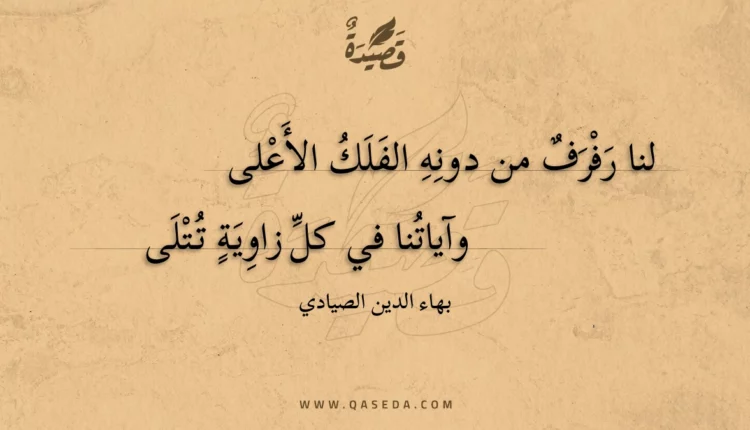 قَصِيْدَةٌ
لنا رَفْرَفٌ من دونِهِ الفَلَكُ الأَعْلى
وآياتُنا في كلِّ زاوِيَةٍ تُتْلَى
بهاء الدين الصيادي
WWW.QASEDA.COM